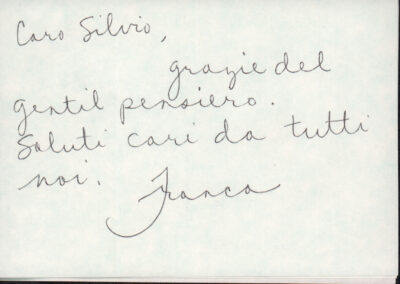 Caro Silvio,
grazie del
gentil pensiero.
Saluti cari da tutti
noi. Franca